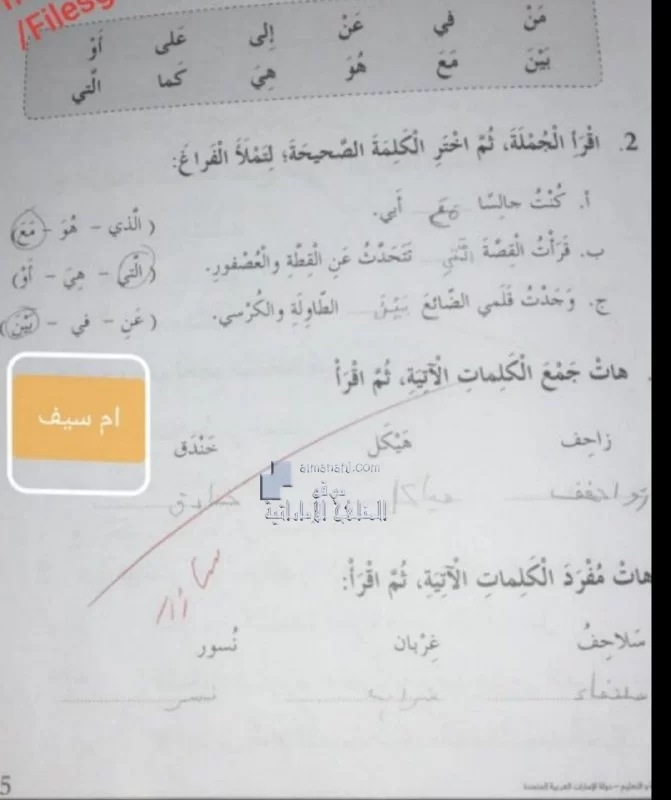 /Filesg
مَنْ في عَنْ إلى عَلى أَوْ
بَيْنَ مَعَ هُوَ هِيَ كَما الَّتي
2. اقْرَأِ الْجُمْلَةَ، ثُمَّ اخْتَرِ الْكَلِمَةَ الصَّحيحَةَ؛ لِتَمْلَأَ الْفَراغَ:
أ. كُنْتُ جالِسًا مع أَبي. ( الَّذي - هُوَ - مَعَ)
ب. قَرَأْتُ الْقِصَّةَ الَّتي تَتَحَدَّثُ عَنِ الْقِطَّةِ والْعُصْفورِ. (الَّتي - هِيَ - أَوْ)
ج. وَجَدْتُ قَلَمي الضّائِعَ بَيْنَ الطّاوِلَةِ والْكُرْسي. ( عَنِ - في - بَيْنَ)
هاتْ جَمْعَ الْكَلِماتِ الْآتِيَةِ، ثُمَّ اقْرَأْ
ام سيف
زاحِف هَيْكَل خَنْدَق
almanahj.com
موقع
المناهج الإماراتية
هاتْ مُفْرَدَ الْكَلِماتِ الْآتِيَةِ، ثُمَّ اقْرَأْ:
سَلاحِفُ غِرْبان نُسور
نسر
التعليم - دولة الإمارات العربية المتحدة
5